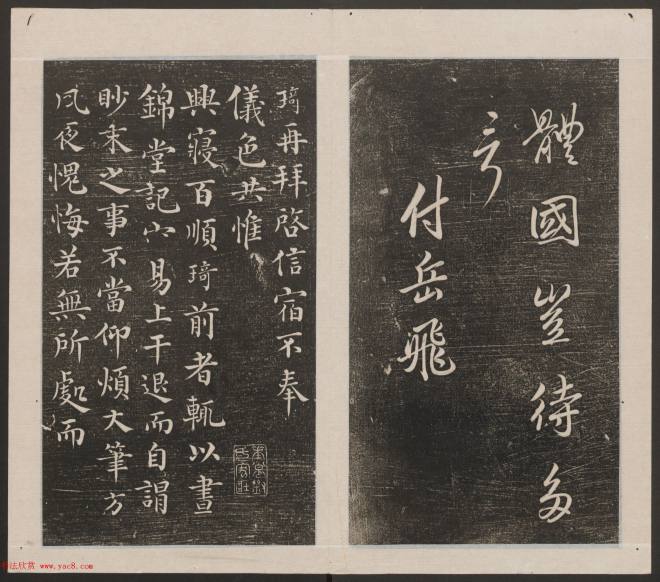 體國豈待多
言
付岳飛
琦再拜啓信宿不奉
儀色共惟
興寢百順琦前者輒以晝
錦堂記容易上干退而自謂
眇末之事不當仰煩大筆方
夙夜愧悔若無所處而
书法欣赏 www.yac8.com